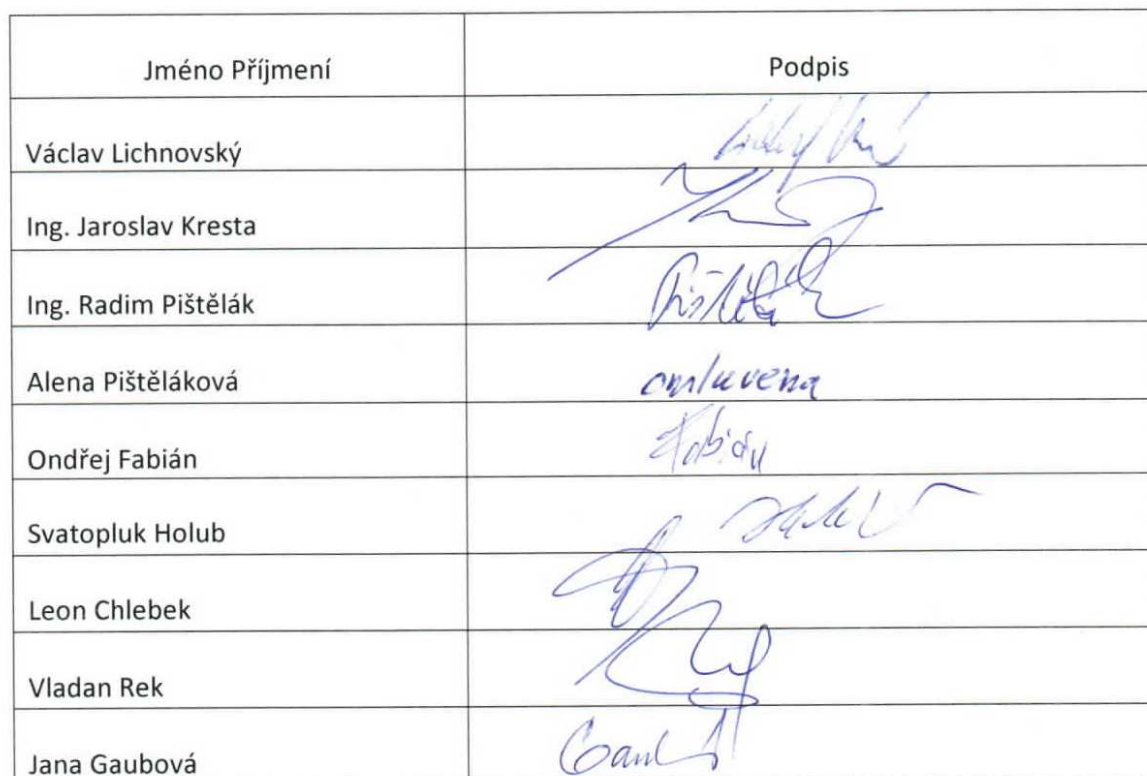 Jméno Příjmení Podpis
Václav Lichnovský
Ing. Jaroslav Kresta
Ing. Radim Pištělák
Alena Pištěláková omluvena
Ondřej Fabián Fabián
Svatopluk Holub
Leon Chlebek
Vladan Rek
Jana Gaubová